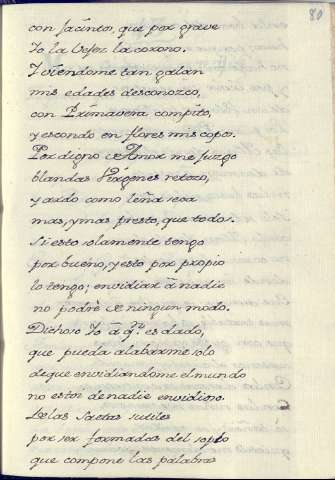 80
con Jacintos, que por grave
Jo la Vejez la corono.
Y viendome tan galan
mis edades desconozco,
con Primavera compito,
y escondo en flores mis copo.
Por digno de Amor me juzgo
blandas Virgenes retozo,
y ardo como leña seca
mas, y mas presto, que todos.
Si esto solamente tengo
por bueno, y esto por propio
lo tengo; envidiar â nadie
no podrè de ningun modo.
Dichoso Jo a q.n es dado,
que pueda alabarme solo
de que envidiandome el mundo
no estoi de nadie envidioso.
De las Saetas sutiles
por ser formadas del soplo
que compone las palabras